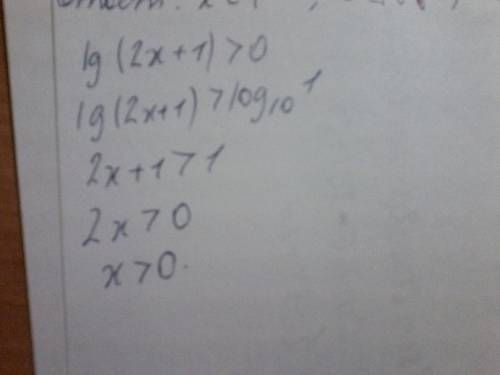 lg(2x+1)>0
lg(2x+1)>log₁₀1
2x+1>1
2x>0
x>0.